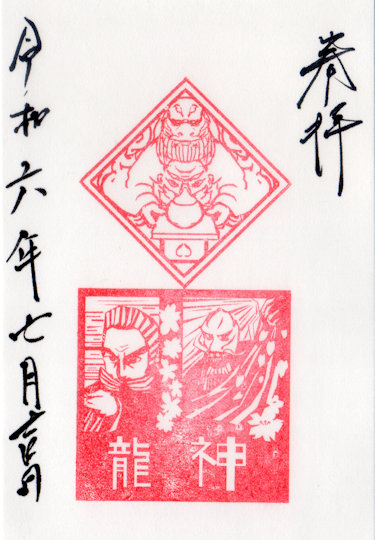 奉拝
龍神
令和六年七月吉日